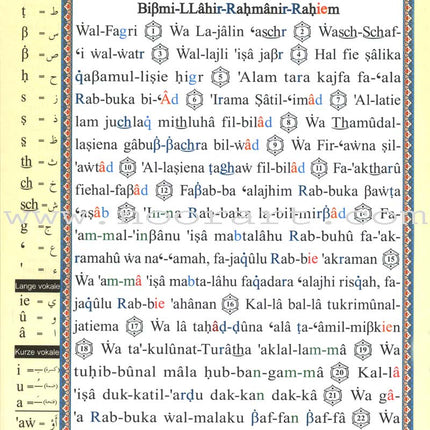 Biβmi-LLâhir-Raḥmânir-Raḥiem
Ẇal-Fagri 1 Ẇa La-jâlin ʻaschr 2 Ẇasch-Schaf-
ʻi ẇal-ẇatr 3 Ẇal-lajli 'iṣâ jaβr 4 Hal fie ṣâlika
qaβamul-liṣie ḥigr 5 'Alam tara kajfa fa-ʻala
Rab-buka bi-ʻÂd 6 'Irama Ṣâtil-ʻimâd 7 'Al-latie
lam juchlaq mithluhâ fil-bilâd 8 Ẇa Thamûdal-
laṣiena gâbuβ-βachra bil-ẇâd 9 Ẇa Fir-ʻaẇna ṣil-
'aẇtâd 10 'Al-laṣiena ṭaghaẇ fil-bilâd 11 Fa-'aktharû
fiehal-faβâd 12 Faβab-ba ʻalajhim Rab-buka βaẇṭa
ʻaṣâb 13 'In-na Rab-baka la-bil-mirβâd 14 Fa-
'am-mal-'inβânu 'iṣâ mabtalâhu Rab-buhû fa-'ak-
ramahû ẇa naʻ-ʻamah, fa-jaqûlu Rab-bie 'akraman 15
Ẇa 'am-mâ 'iṣâ mabta-lâhu faqadara ʻalajhi risqah, fa-
jaqûlu Rab-bie 'ahânan 16 Kal-lâ bal-lâ tukrimûnal-
jatiema 17 Ẇa lâ taḥâḍ-ḍûna ʻalâ ṭa-ʻâmil-miβkien
18 Ẇa ta'kulûnat-Turâtha 'aklal-lam-mâ 19 Ẇa
tuḥib-bûnal mâla ḥub-ban-gam-mâ 20 Kal-lâ
'iṣâ duk-katil-'arḍu dak-kan dak-kâ 21 Ẇa gâ-
'a Rab-buka ẇal-malaku βaf-fan βaf-fâ 22 Ẇa
ṭ = ط
β = ص
ḍ = ض
ḥ = ح
s = ز
ṣ = ذ
th = ث
ch = خ
sch = ش
g = ج
ʻ = ع
' = ء
Lange vokale
ie = ي
û = و
â = ا
Kurze vokale
i =
u =
a =
'aẇ =
www.noorart.com